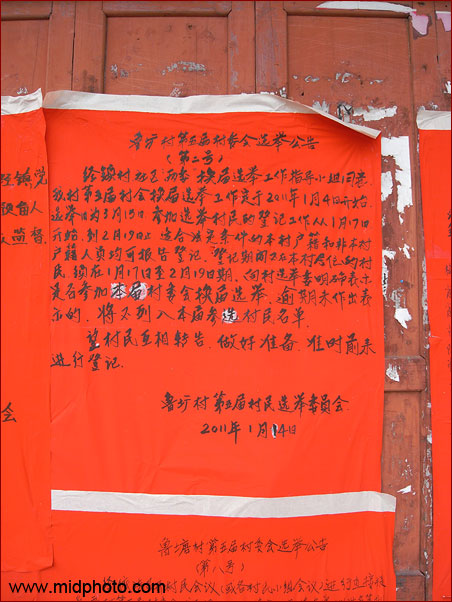 鲁圹村第五届村委会选举公告
(第二号)
经镇村社区两委换届选举工作指导小组同意,
我村第五届村会换届选举工作定于2011年1月4日开始
选举日为3月15日。参加选举村民的登记工作从1月17日
开始到2月19日止。适合法定条件的本村户籍和非本村
户籍人员均可报告登记。登记期间不在本村居住的村
民须在1月17日至2月19日期,向村选举委明确表示
是否参加本届村委会换届选举。逾期未作出表
示的,将不列入本届参选村民名单。
望村民互相转告,做好准备,准时前来
进行登记。
鲁圹村第五届村民选举委员会
2011年1月14日
鲁塘村第五届村委会选举公告
(第八号)
村民会议(或各村民小组会议)
选自人
监督
会
www.midphoto.com